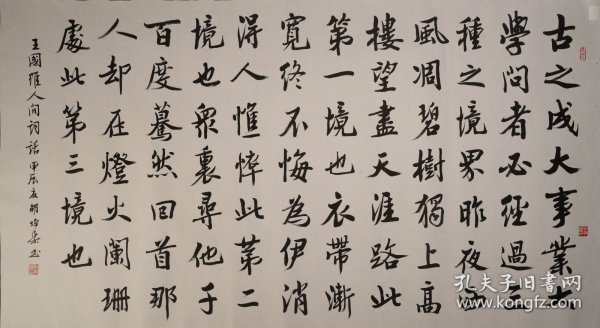 古之成大事業大
學問者必經過三
種之境界昨夜西
風凋碧樹獨上高
樓望盡天涯路此
第一境也衣帶漸
寬終不悔為伊消
得人憔悴此第二
境也衆裏尋他千
百度驀然回首那
人却在燈火闌珊
處此第三境也
王國維人间词话甲辰夏
孔夫子旧书网
www.kongfz.com